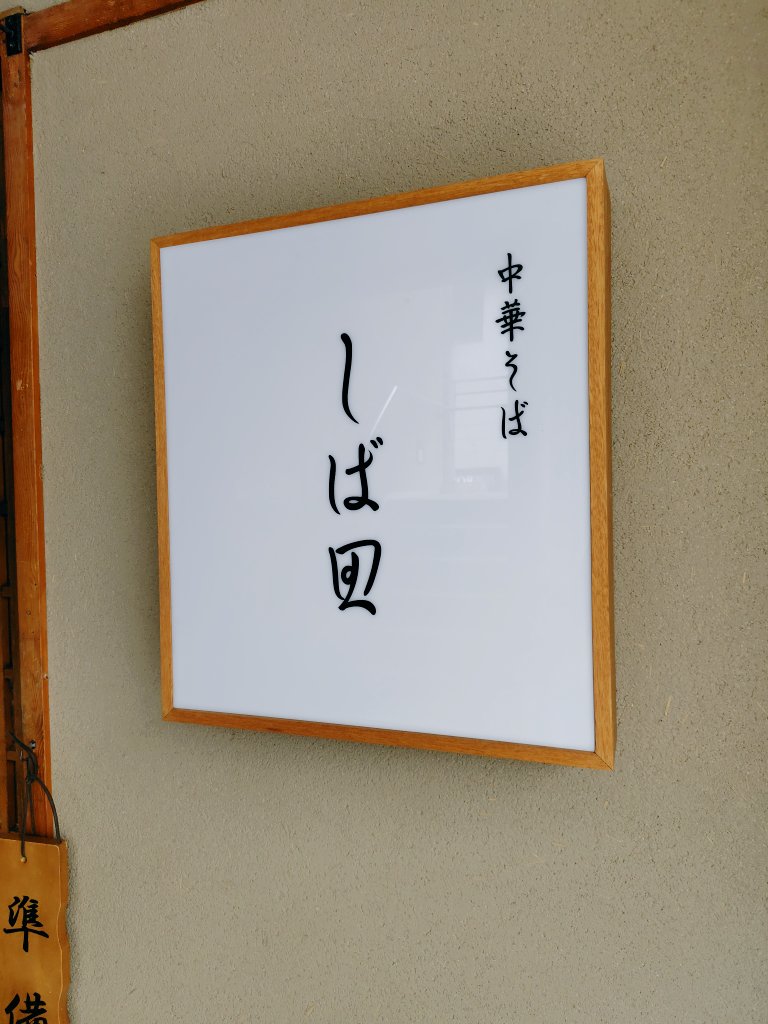 中華そば
しば田
準備